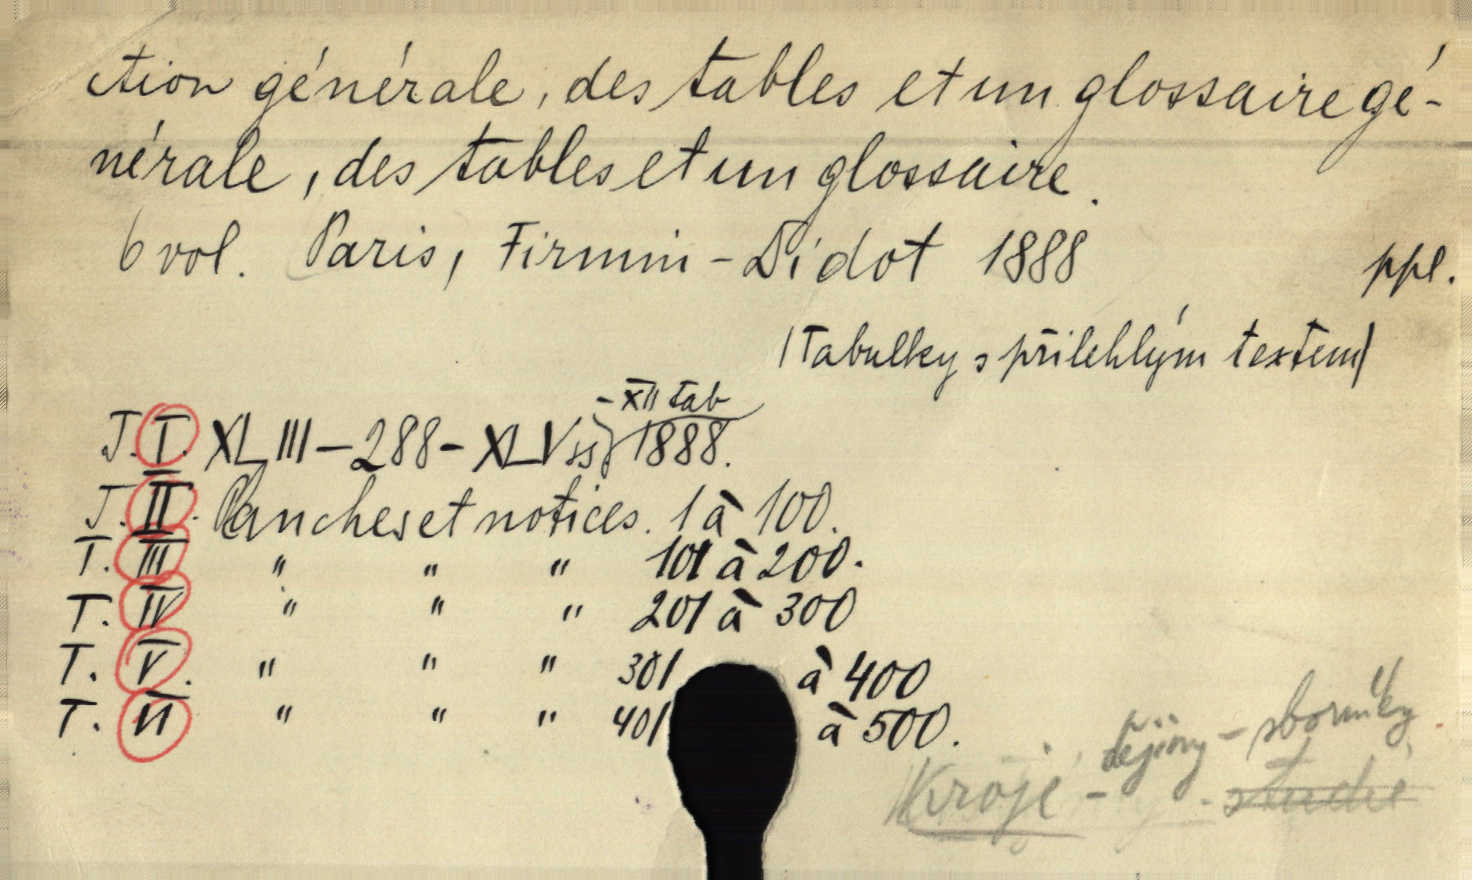 ction générale, des tables et un glossaire gé-
nérale, des tables et un glossaire.
6 vol. Paris, Firmin-Didot 1888 ppl.
(Tabulky s přilehlým textem)
- XII tab
T. I. XLIII-288-XLV ss, 1888.
T. II. Planches et notices. 1 à 100.
T. III " " " 101 à 200.
T. IV " " " 201 à 300
T. V. " " " 301 à 400
T. VI " " " 401 à 500.
Kroje - dějiny - sborníky
- studie